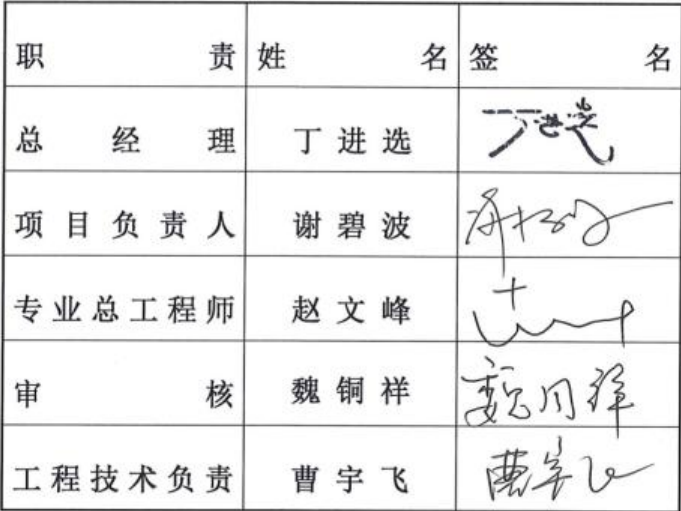 职责 姓名 签名
总经理 丁进选 丁进选
项目负责人 谢碧波
专业总工程师 赵文峰
审核 魏铜祥 魏同祥
工程技术负责 曹宇飞 曹宇飞